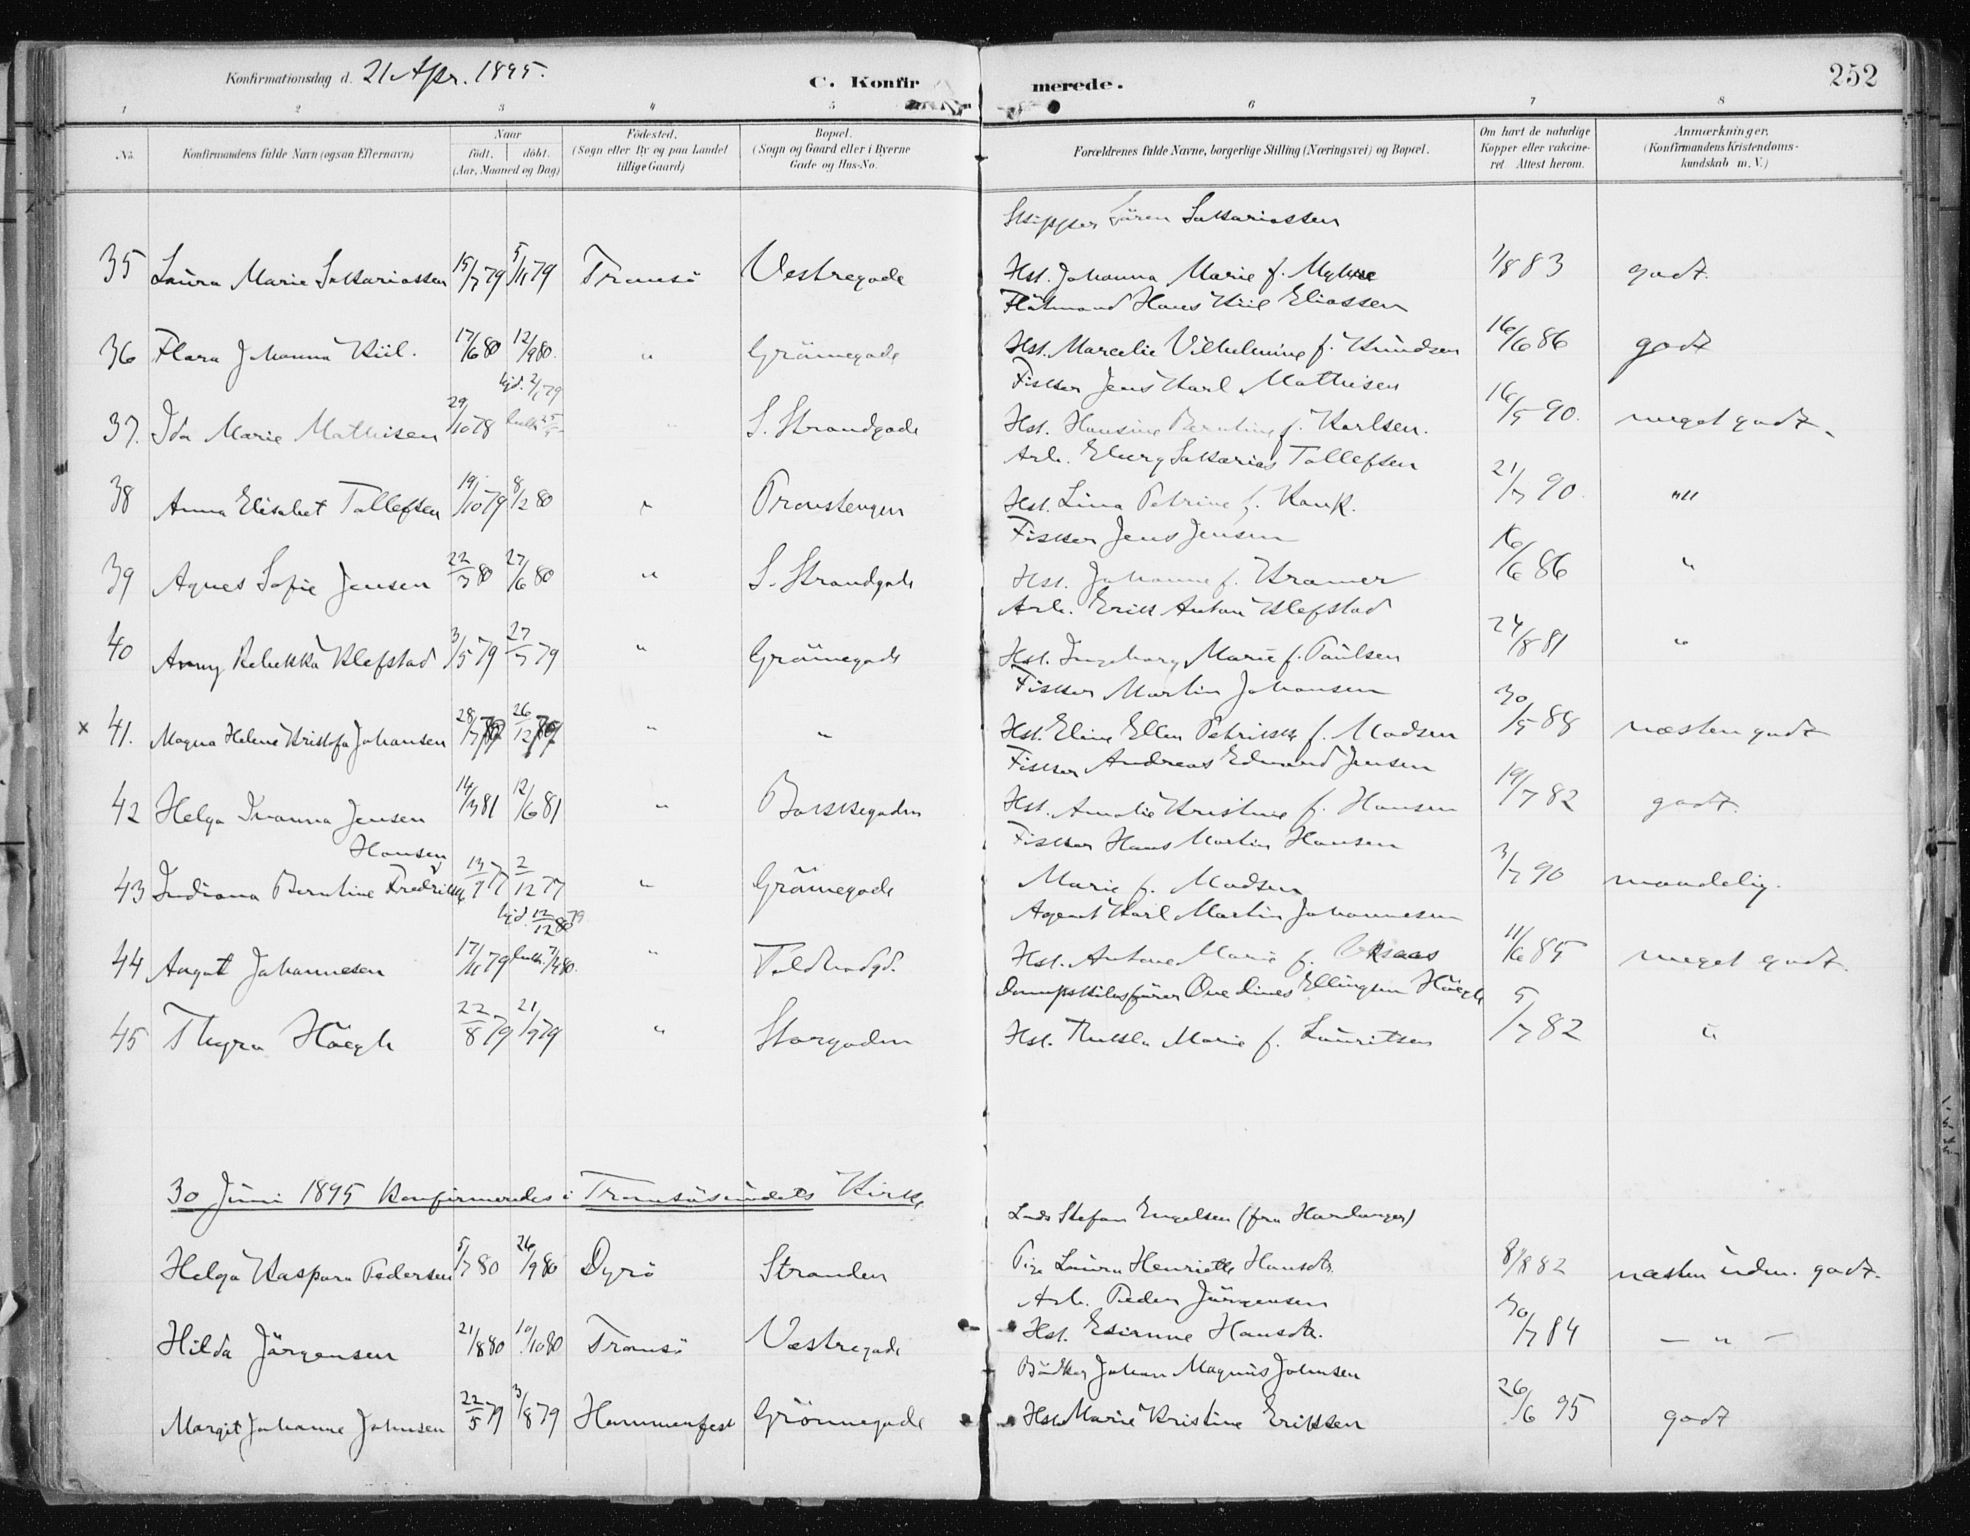 Konfirmationsdag d. 21 Apr. 1895.
C. Konfirmerede.
252
1 2 3 4 5 6 7 8
No. Konfirmandens fulde Navn (ogsaa Efternavn) Naar født, døbt. (Aar, Maaned og Dag) Fødested. (Sogn eller By og paa Landet tillige Gaard) Bopæl. (Sogn og Gaard eller i Byerne Gade og Hus-No. Forældrenes fulde Navne, borgerlige Stilling (Næringsvei) og Bopæl. Om havt de naturlige Kopper eller vakcineret. Attest herom. Anmærkninger. (Konfirmandens Kristendomskundskab m. V.)
Skipper Sören Sakariassen
35 Laura Marie Sakariassen 15/7 79 5/11 79 Tromsö Vestregade Hst. Johanna Marie f. Myhre 1/8 83 godt.
Flåtmand Hans Kiil Eliassen
36 Flara Johanna Kiil. 17/6 80 12/9 80. " Grönnegade Hst. Marcelie Vilhelmine f. Knudsen 16/6 86 godt
hjd. 2/1 79 Fisker Jens Karl Mathisen
37. Ida Marie Mathisen 29/10 78 " S. Strandgade Hst. Hansine Berntine f. Karlsen. 16/5 90. meget godt.
Arb. Eberg Sakarias Tollefsen
38 Anna Elisabet Tollefsen 19/10 79 8/2 80 " Pronstengen Hst. Lina Petrine f. 21/7 90. "
Fisker Jens Jensen
39 Agnes Sofie Jensen 22/3 80 27/6 80 " S. Strandgade Hst. Johanne f. Kramer 16/6 86 "
Arb. Erik Antoni Klefstad
40 Anny Rebekka Klefstad 3/5 79 27/7 79 " Grönnegade Hst. Ingeborg Marie f. Paulsen 24/8 81 "
Fisker Martin Johansen
x 41. Magna Helene Kristofa Johansen 28/7 79 26/12 79 " " Hst. Eline Ellen Petrikke f. Madsen 30/5 88 næsten godt
Fisker Andreas Edvard Jensen
42 Helga Ivanna Jensen 14/3 81 12/6 81 " Bakkegaden Hst. Amalie Kristine f. Hansen 19/7 82 godt.
Hansen Fisker Hans Martin Hansen
43 Indiana Berntine Fredrikke 13/7 77 2/12 77 " Grönnegade Marie f. Madsen 3/7 90 maadelig.
hjd. 12/12 79 Agent Karl Martin Johannesen
44 August Johannesen 17/11 79 " Toldbodgd. Hst. Antone Marie f. 11/6 85 meget godt.
Dampskibsförer Ove Dines Ellingsen Höegh
45 Thyra Höegh 22/8 79 21/9 79 " Storgaden Hst. Thekla Marie f. Lauritsen 5/7 82 "
30 Juni 1895 Konfirmeredes i Tromsösundets Kirke
Lods Stefan Engelsen (fra Hardanger)
Helga Kaspara Pedersen 5/7 80 26/9 80 Dyrö Stranden Pige Laura Henriette Hansdtr. 8/8 82 næsten udm. godt.
Arb. Peder Jörgensen
Hilda Jörgensen 21/8 80 10/10 80 Tromsö Vestregade Hst. Esianne Hansdtr. 30/7 84 — " —
Bödker Johan Magnus Johnsen
Margit Johanne Johnsen 22/5 79 3/8 79 Hammerfest Grönnegade Hst. Marie Kristine Eriksen 26/6 95 godt